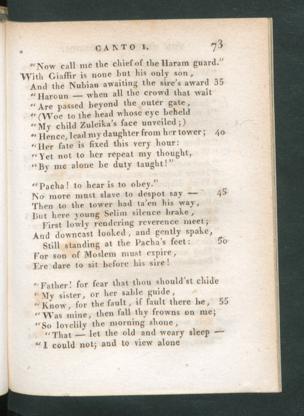 CANTO I. 73
"Now call me the chief of the Haram guard."
With Giaffir is none but his only son,
And the Nubian awaiting the sire's award 35
"Haroun — when all the crowd that wait
"Are passed beyond the outer gate,
"(Woe to the head whose eye beheld
"My child Zuleika's face unveiled;)
"Hence, lead my daughter from her tower; 40
"Her fate is fixed this very hour:
"Yet not to her repeat my thought,
"By me alone be duty taught!"
"Pacha! to hear is to obey."
No more must slave to despot say — 45
Then to the tower had ta'en his way,
But here young Selim silence brake,
First lowly rendering reverence meet;
And downcast looked, and gently spake,
Still standing at the Pacha's feet: 50
For son of Moslem must expire,
Ere dare to sit before his sire!
"Father! for fear that thou should'st chide
"My sister, or her sable guide,
"Know, for the fault, if fault there be, 55
"Was mine, then fall thy frowns on me;
"So lovelily the morning shone,
"That — let the old and weary sleep —
"I could not; and to view alone